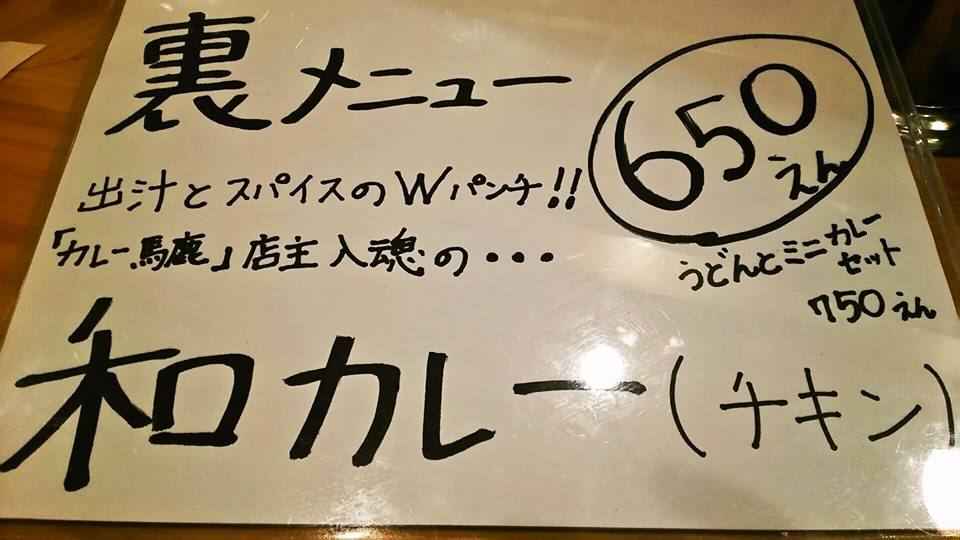 裏メニュー
650えん
出汁とスパイスのWパンチ!!
「カレー馬鹿」店主入魂の・・・
うどんとミニカレーセット
750えん
和カレー(チキン)